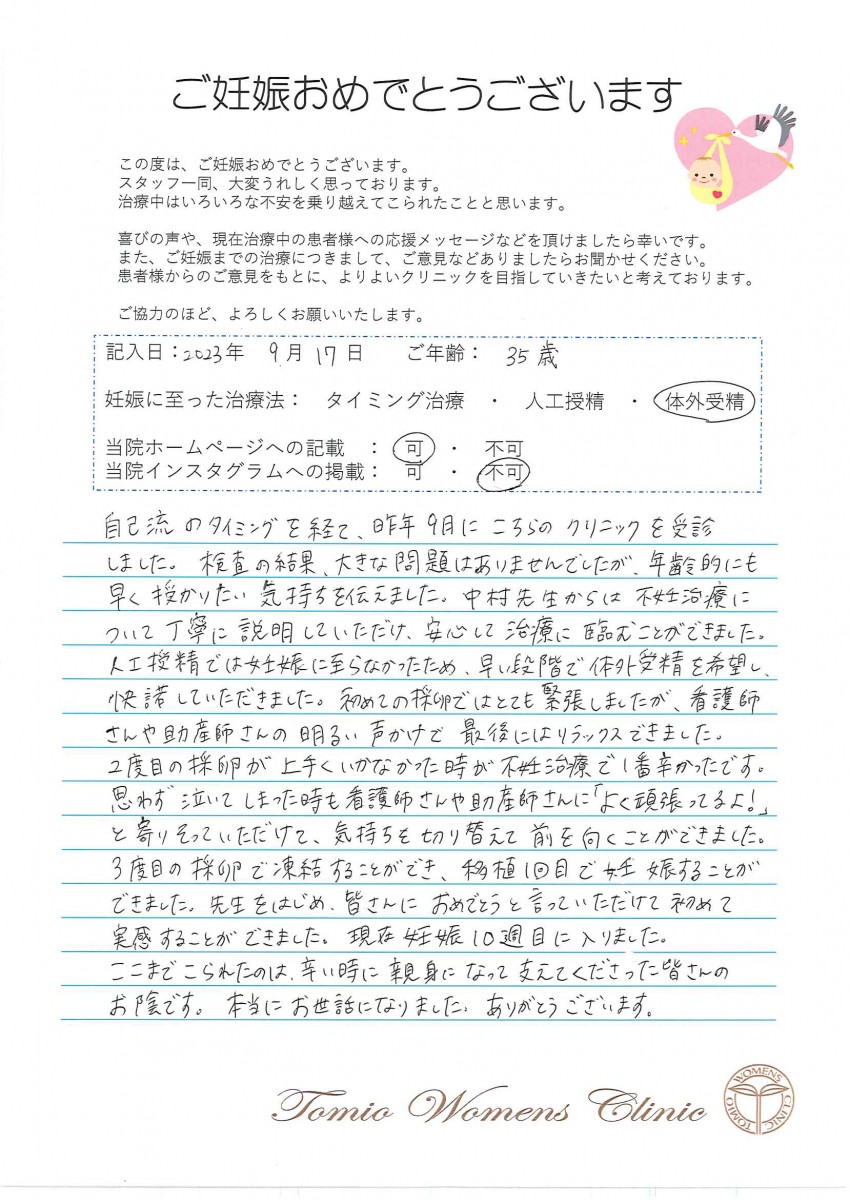 ご妊娠おめでとうございます
この度は、ご妊娠おめでとうございます。
スタッフ一同、大変うれしく思っております。
治療中はいろいろな不安を乗り越えてこられたことと思います。
喜びの声や、現在治療中の患者様への応援メッセージなどを頂けましたら幸いです。
また、ご妊娠までの治療につきまして、ご意見などありましたらお聞かせください。
患者様からのご意見をもとに、よりよいクリニックを目指していきたいと考えております。
ご協力のほど、よろしくお願いいたします。
記入日：2023年 9月 17日 ご年齢： 35歳
妊娠に至った治療法： タイミング治療 ・ 人工授精 ・ 体外受精
当院ホームページへの記載 ： 可 ・ 不可
当院インスタグラムへの掲載： 可 ・ 不可
自己流のタイミングを経て、昨年9月にこちらのクリニックを受診
しました。検査の結果、大きな問題はありませんでしたが、年齢的にも
早く授かりたい気持ちを伝えました。中村先生からは不妊治療に
ついて丁寧に説明していただけ、安心して治療に臨むことができました。
人工授精では妊娠に至らなかったため、早い段階で体外受精を希望し、
快諾していただきました。初めての採卵ではとても緊張しましたが、看護師
さんや助産師さんの明るい声かけで最後にはリラックスできました。
2度目の採卵が上手くいかなかった時が不妊治療で1番辛かったです。
思わず泣いてしまった時も看護師さんや助産師さんに「よく頑張ってるよ!」
と寄りそっていただけて、気持ちを切り替えて前を向くことができました。
3度目の採卵で凍結することができ、移植1回目で妊娠することが
できました。先生をはじめ、皆さんにおめでとうと言っていただけて初めて
実感することができました。現在妊娠10週目に入りました。
ここまでこられたのは、辛い時に親身になって支えてくださった皆さんの
お陰です。本当にお世話になりました。ありがとうございます。
Tomio Womens Clinic
TOMIO WOMENS CLINIC